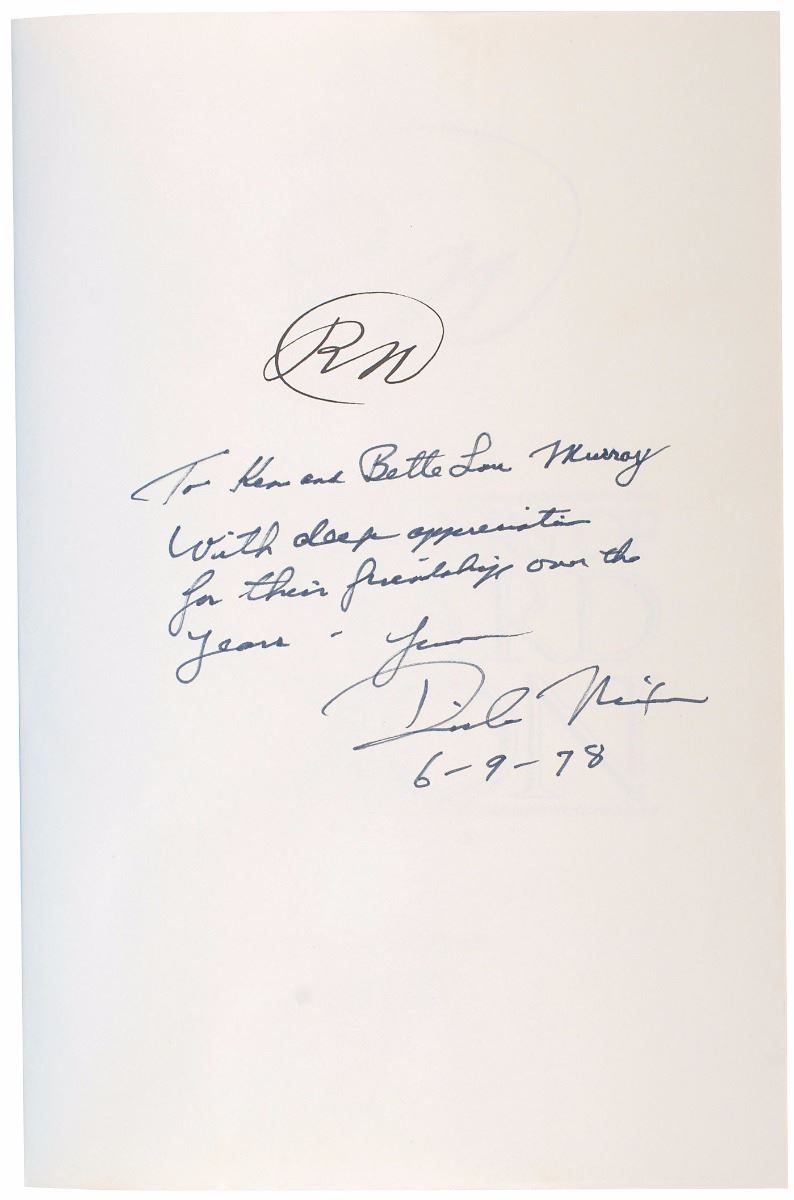 RN
To Ken and Bette Lou Murray
With deep appreciation
for their friendship over the
years -
Dick Nixon
6-9-78